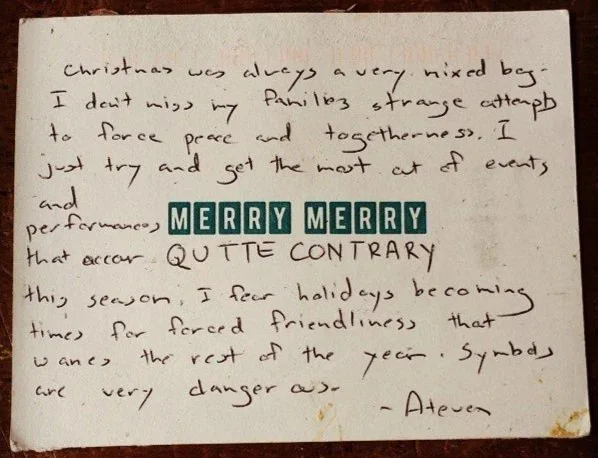 Christmas was always a very mixed bag.
I don't miss my families strange attempts
to force peace and togetherness. I
just try and get the most out of events
and
performances MERRY MERRY
that occur QUITE CONTRARY
this season. I fear holidays becoming
times for forced friendliness that
wanes the rest of the year. Symbols
are very dangerous.
- Ateven